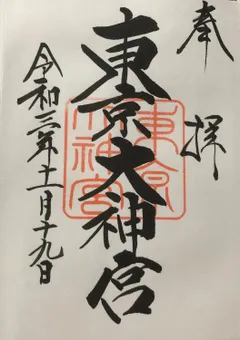 奉拝
東京大神宮
東京大神宮
令和三年十一月十九日